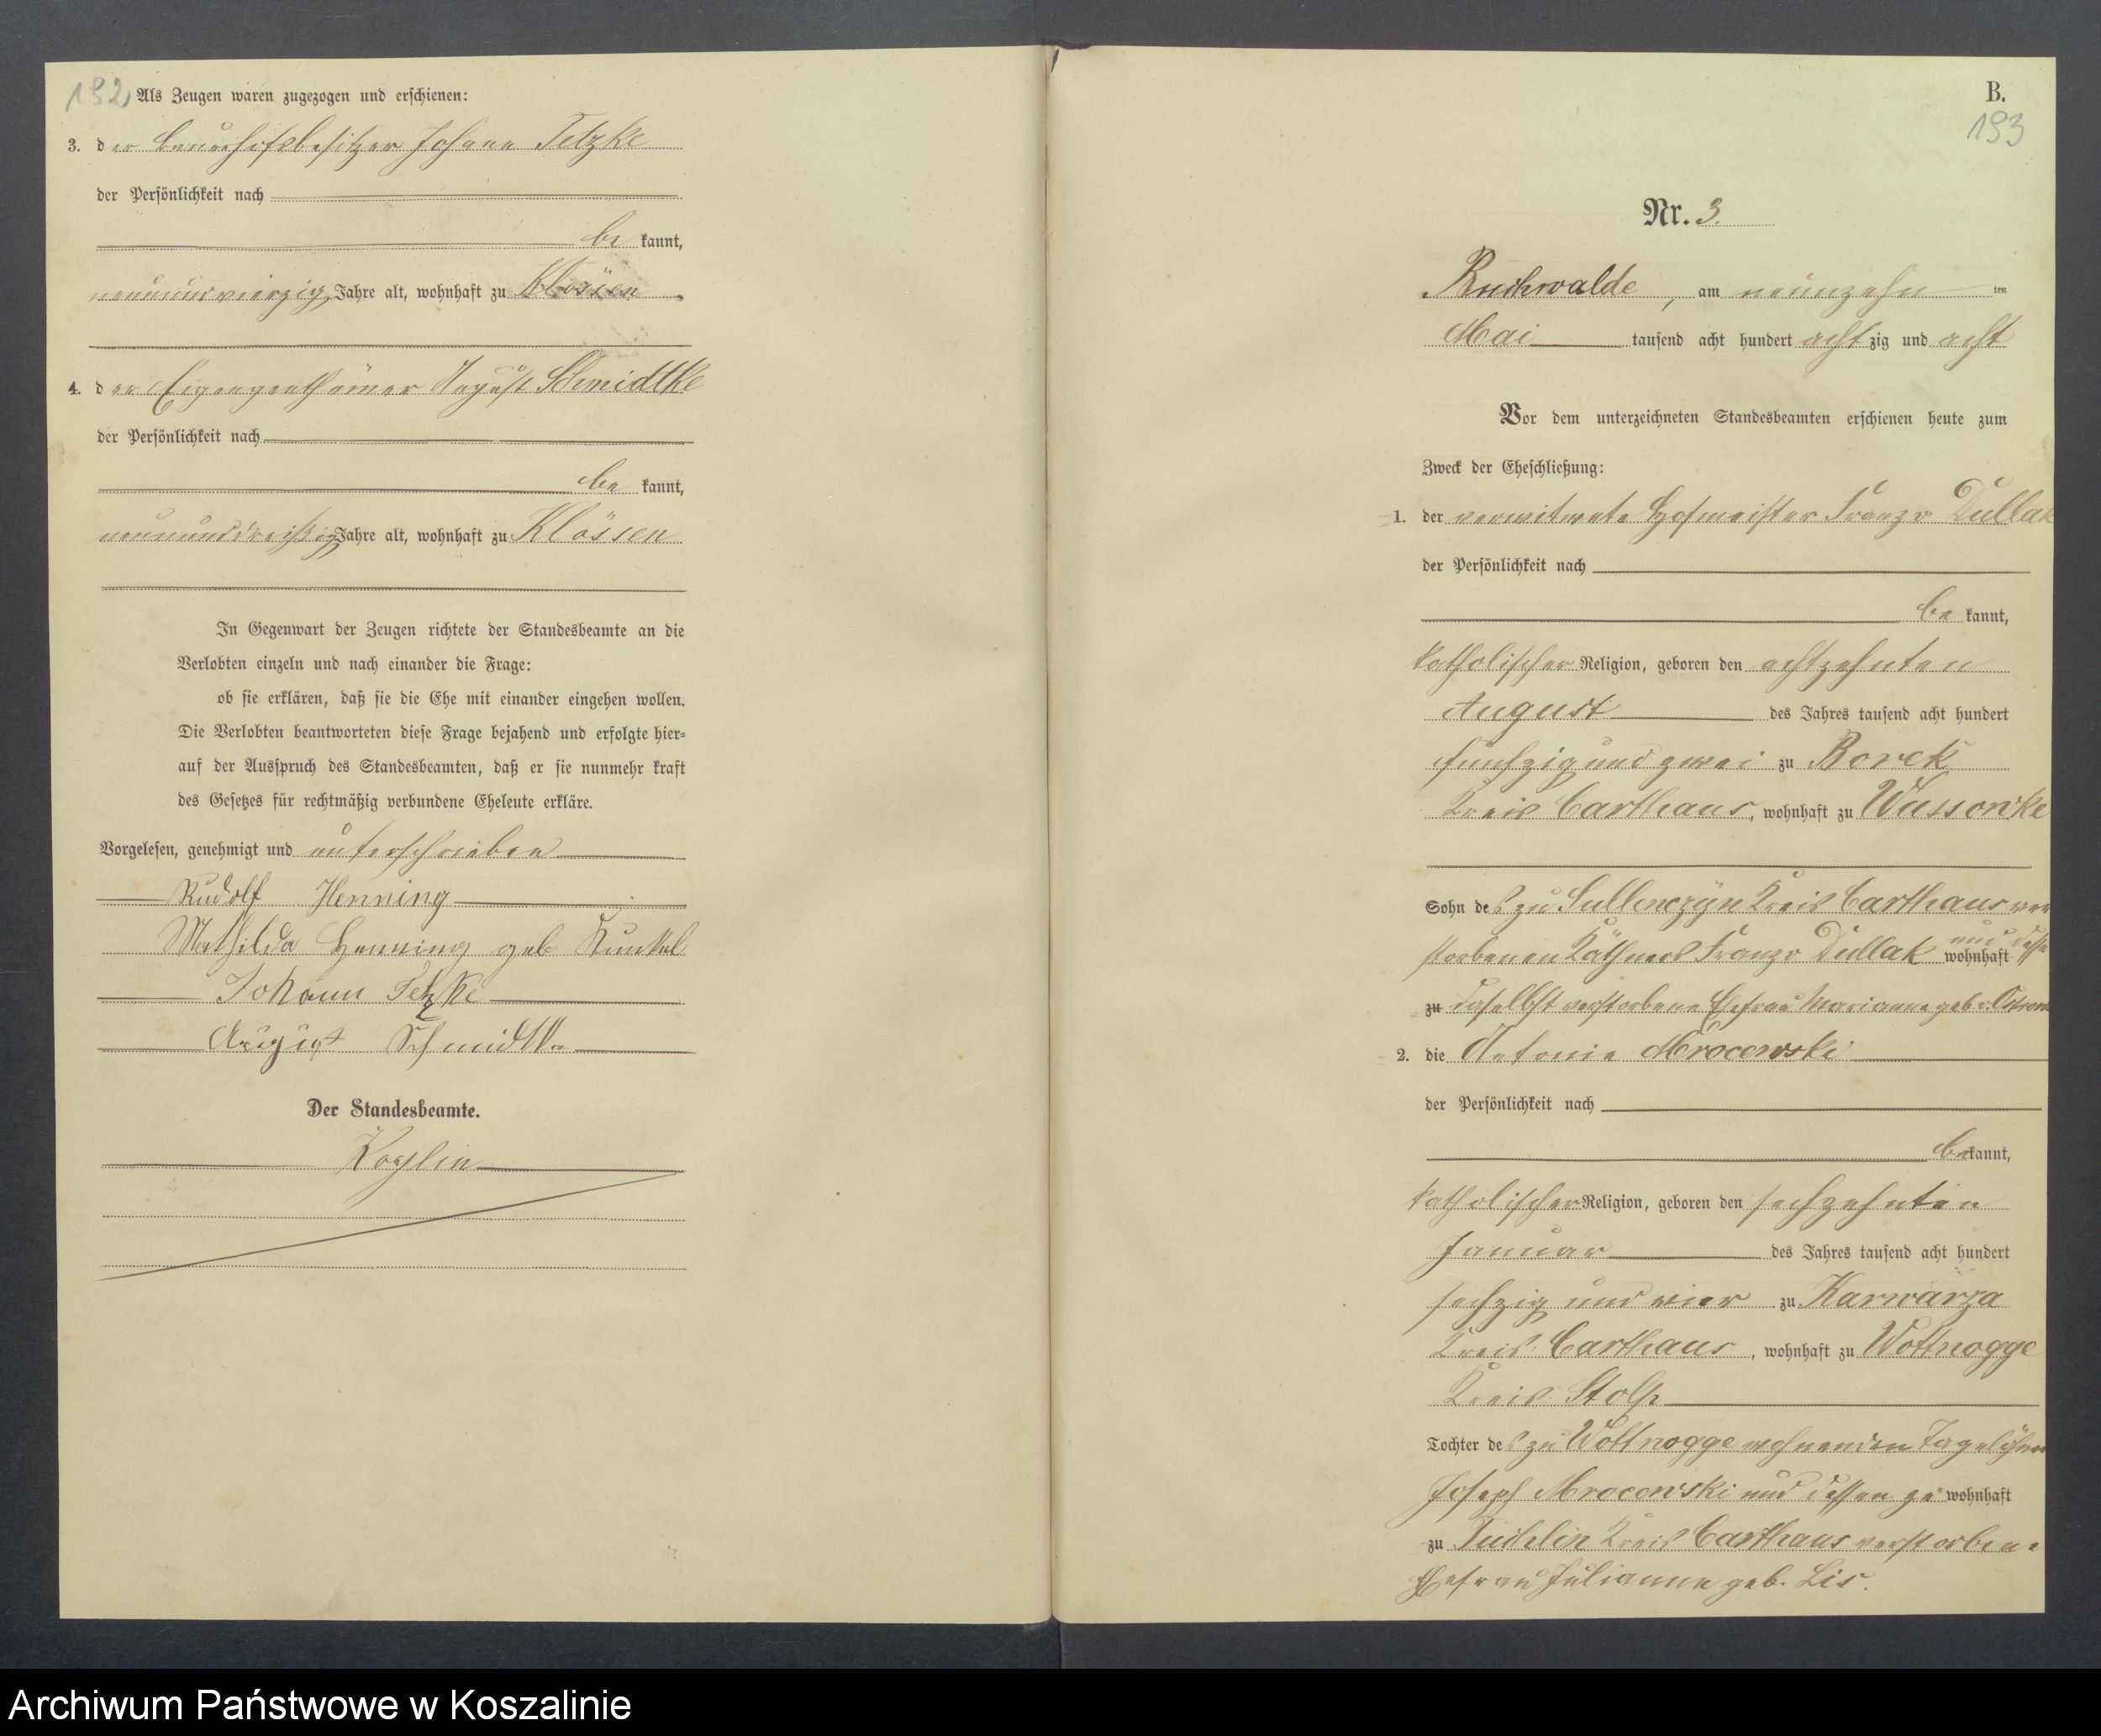 192
Als Zeugen waren zugezogen und erschienen:
3. der Bauerhofsbesitzer Johann Tetzke
der Persönlichkeit nach
be kannt,
neunundvierzig Jahre alt, wohnhaft zu Klössen
4. der Eigengenthümer August Schmidtke
der Persönlichkeit nach
be kannt,
neununddreißig Jahre alt, wohnhaft zu Klössen
In Gegenwart der Zeugen richtete der Standesbeamte an die
Verlobten einzeln und nach einander die Frage:
ob sie erklären, daß sie die Ehe mit einander eingehen wollen.
Die Verlobten beantworteten diese Frage bejahend und erfolgte hier-
auf der Ausspruch des Standesbeamten, daß er sie nunmehr kraft
des Gesetzes für rechtmäßig verbundene Eheleute erkläre.
Vorgelesen, genehmigt und unterschrieben
Rudolf Henning
Mathilda Henning geb Kunkel
Johann Tetzke
August Schmidtke
Der Standesbeamte.
B.
193
Nr. 3.
Buchwalde, am neunzehn ten
Mai tausend acht hundert acht zig und acht
Vor dem unterzeichneten Standesbeamten erschienen heute zum
Zweck der Eheschließung:
1. der verwitwete Hofmeister Franz v Dullak
der Persönlichkeit nach
be kannt,
katholischer Religion, geboren den achtzehnten
August des Jahres tausend acht hundert
funfzig und zwei zu Borek
Kreis Carthaus, wohnhaft zu Wussowke
Sohn des zu Sullenczyn Kreis Carthaus ver
storbenen Käthners Franz v Dullak und dessen wohnhaft
zu daselbst verstorbene Ehefrau Marianne geb v.
2. die Antonie Mrocowski
der Persönlichkeit nach
be kannt,
katholischer Religion, geboren den sechzehnten
Januar des Jahres tausend acht hundert
sechzig und vier zu Karwarza
Kreis Carthaus, wohnhaft zu Wottnogge
Kreis Stolp
Tochter des zu Wottnogge wohnenden Tagelöhners
Joseph Mrocowski und dessen zu wohnhaft
zu Tuchlin Kreis Carthaus verstorbene
Ehefrau Julianne geb. Lis.
Archiwum Państwowe w Koszalinie